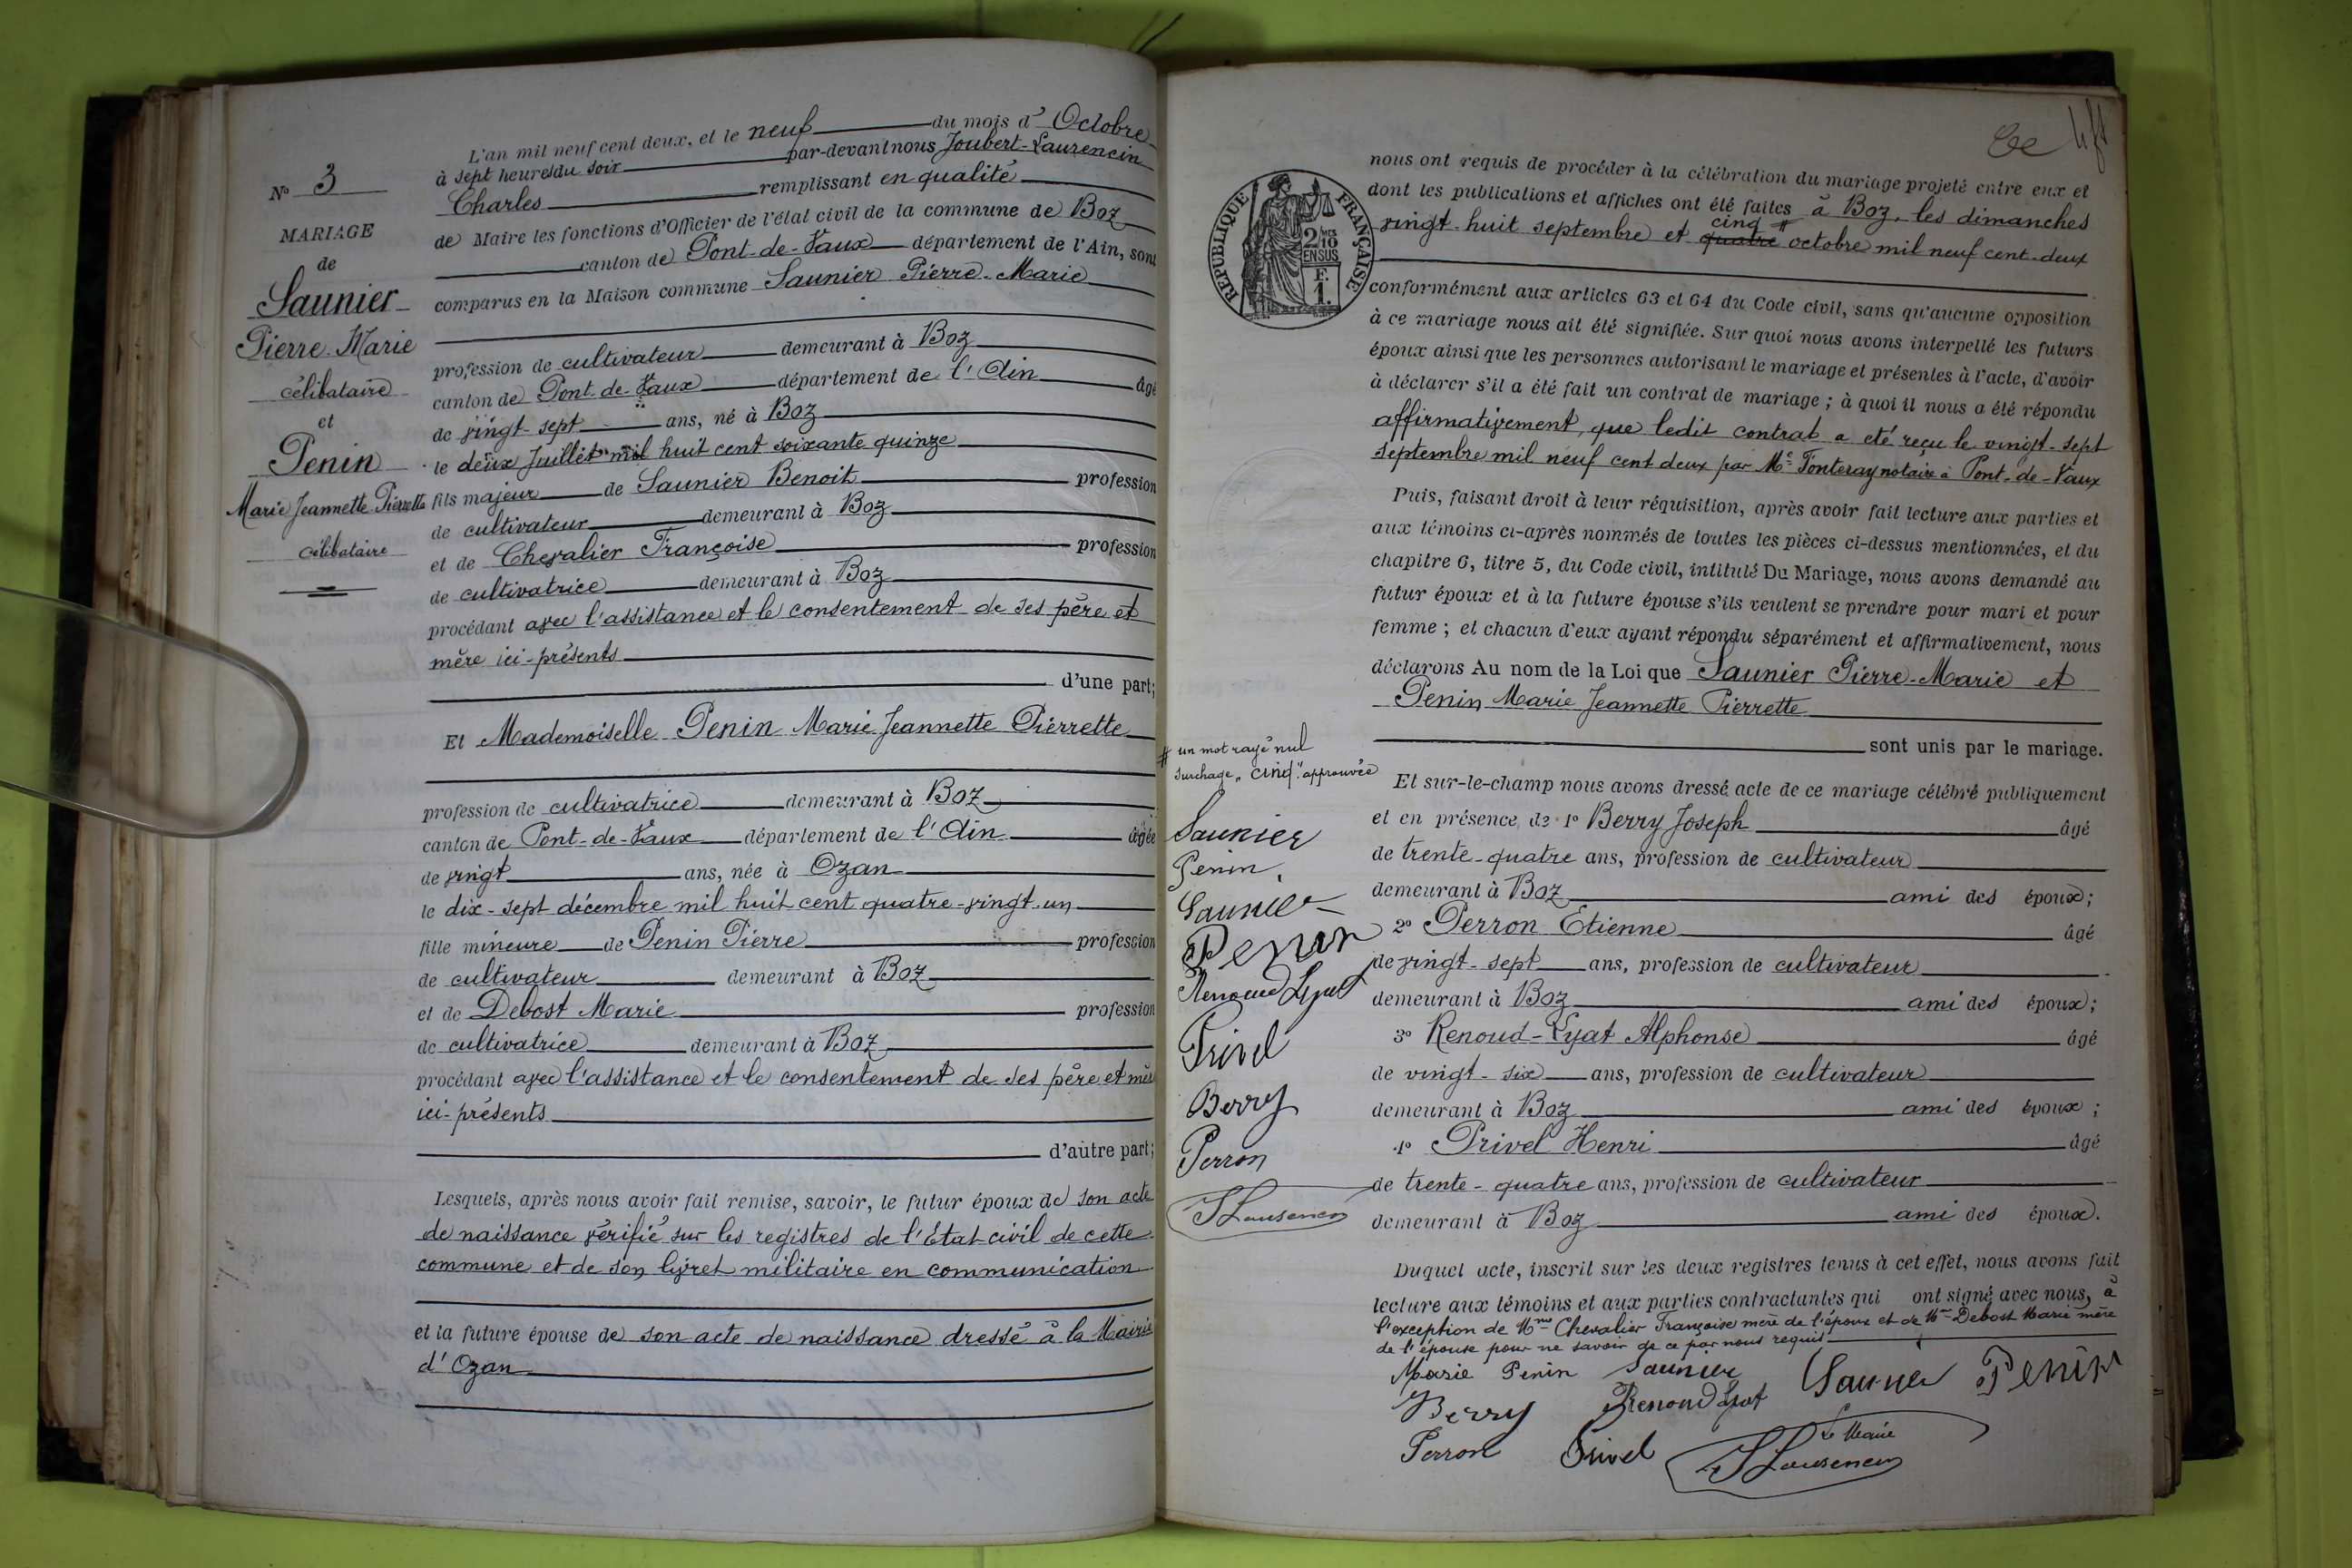 N° 3
MARIAGE
de
Saunier
Pierre-Marie
célibataire
et
Penin
Marie Jeannette Pierrette
célibataire
L'an mil neuf cent deux, et le neuf du mois d'Octobre
à sept heures du soir par-devant nous Joubert-Laurencin
Charles remplissant en qualité
de Maire les fonctions d'Officier de l'état civil de la commune de Boz
canton de Pont-de-Vaux département de l'Ain, sont
comparus en la Maison commune Saunier Pierre-Marie
profession de cultivateur demeurant à Boz
canton de Pont-de-Vaux département de l'Ain âgé
de vingt-sept ans, né à Boz
le deux Juillet mil huit cent soixante quinze
fils majeur de Saunier Benoit profession
de cultivateur demeurant à Boz
et de Chevalier Françoise profession
de cultivatrice demeurant à Boz
procédant avec l'assistance et le consentement de ses père et
mère ici-présents
d'une part;
Et Mademoiselle Penin Marie Jeannette Pierrette
profession de cultivatrice demeurant à Boz
canton de Pont-de-Vaux département de l'Ain âgée
de vingt ans, née à Ozan
le dix-sept décembre mil huit cent quatre-vingt-un
fille mineure de Penin Pierre profession
de cultivateur demeurant à Boz
et de Debost Marie profession
de cultivatrice demeurant à Boz
procédant avec l'assistance et le consentement de ses père et mère
ici-présents
d'autre part;
Lesquels, après nous avoir fait remise, savoir, le futur époux de son acte
de naissance vérifié sur les registres de l'État-civil de cette
commune et de son livret militaire en communication
et la future épouse de son acte de naissance dressé à la Mairie
d'Ozan
RÉPUBLIQUE FRANÇAISE
2/10 EN SUS
F.
1.
nous ont requis de procéder à la célébration du mariage projeté entre eux et
dont les publications et affiches ont été faites à Boz, les dimanches
cinq #
vingt-huit septembre et quatre octobre mil neuf cent-deux
conformément aux articles 63 et 64 du Code civil, sans qu'aucune opposition
à ce mariage nous ait été signifiée. Sur quoi nous avons interpellé les futurs
époux ainsi que les personnes autorisant le mariage et présentes à l'acte, d'avoir
à déclarer s'il a été fait un contrat de mariage; à quoi il nous a été répondu
affirmativement, que ledit contrat a été reçu le vingt-sept
septembre mil neuf cent deux par Me Fonteray notaire à Pont-de-Vaux
Puis, faisant droit à leur réquisition, après avoir fait lecture aux parties et
aux témoins ci-après nommés de toutes les pièces ci-dessus mentionnées, et du
chapitre 6, titre 5, du Code civil, intitulé Du Mariage, nous avons demandé au
futur époux et à la future épouse s'ils veulent se prendre pour mari et pour
femme; et chacun d'eux ayant répondu séparément et affirmativement, nous
déclarons Au nom de la Loi que Saunier Pierre-Marie et
Penin Marie Jeannette Pierrette
sont unis par le mariage.
# un mot rayé nul
surchage "cinq" approuvée
Saunier
Penin
Saunier
Penin
Renoud Lyat
Privel
Berry
Perron
JLaurencin
Et sur-le-champ nous avons dressé acte de ce mariage célébré publiquement
et en présence de 1° Berry Joseph âgé
de trente-quatre ans, profession de cultivateur
demeurant à Boz ami des époux;
2° Perron Etienne âgé
de vingt-sept ans, profession de cultivateur
demeurant à Boz ami des époux;
3° Renoud-Lyat Alphonse âgé
de vingt-six ans, profession de cultivateur
demeurant à Boz ami des époux;
4° Privel Henri âgé
de trente-quatre ans, profession de cultivateur
demeurant à Boz ami des époux.
Duquel acte, inscrit sur les deux registres tenus à cet effet, nous avons fait
lecture aux témoins et aux parties contractantes qui ont signé avec nous, à
l'exception de Mme Chevalier Françoise mère de l'époux et de Mme Debost Marie mère
de l'épouse pour ne savoir de ce par nous requis
Marie Penin Saunier Saunier Penin
Berry Renoud Lyat
Perron Privel
Le Maire
JLaurencin